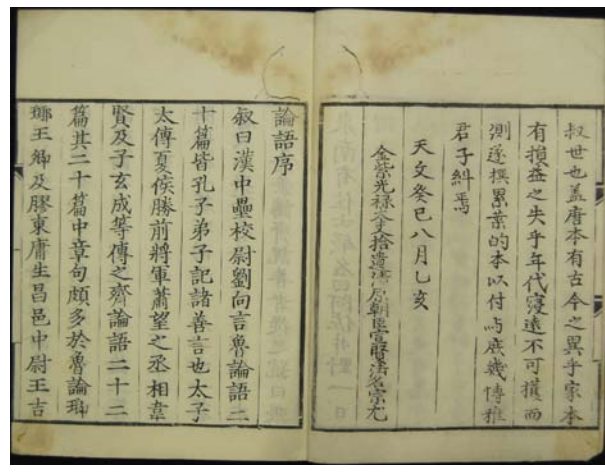 叔世也盖唐本有古今之異乎家本
有損益之失乎年代寖遠不可獲而
測遂撰累葉的本以付与庶幾博雅
君子糾焉
天文癸巳八月乙亥
金紫光禄大夫拾遺清原朝臣宣賢法名宗尤
論語序
叙曰漢中壘校尉劉向言魯論語二
十篇皆孔子弟子記諸善言也太子
太傅夏侯勝前將軍蕭望之丞相韋
賢及子玄成等傳之齊論語二十二
篇其二十篇中章句頗多於魯論
王卿及膠東庸生昌邑中尉王吉